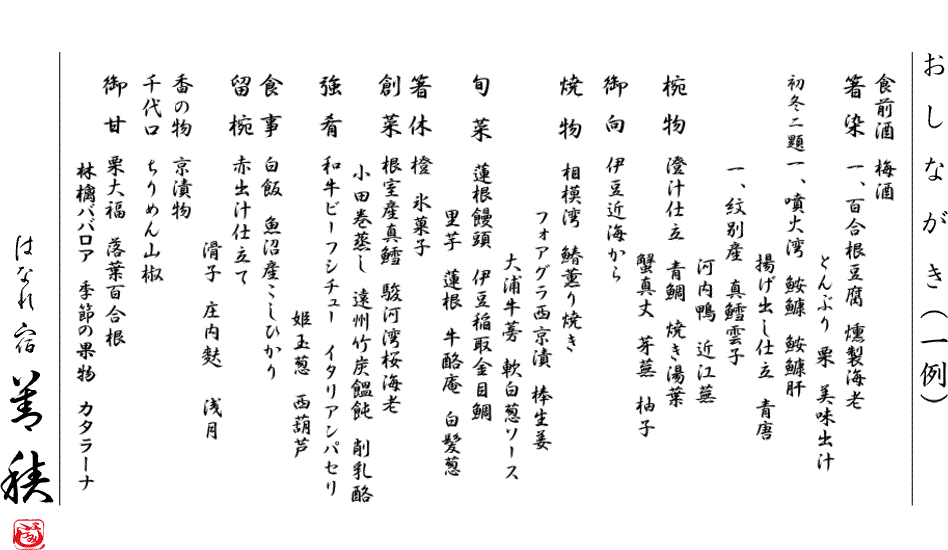 おしながき(一例)
食前酒 梅酒
箸染 一、百合根豆腐 燻製海老
とんぶり 栗 美味出汁
初冬二題 一、噴火湾 鮟鱇 鮟鱇肝
揚げ出し仕立 青唐
一、紋別産 真鱈雲子
河内鴨 近江蕪
椀物 澄汁仕立 青鯛 焼き湯葉
蟹真丈 芽蕪 柚子
御向 伊豆近海から
焼物 相模湾 鰆薫り焼き
フォアグラ西京漬 棒生姜
大浦牛蒡 軟白葱ソース
旬菜 蓮根饅頭 伊豆稲取金目鯛
里芋 蓮根 牛酪庵 白髪葱
箸休 橙 氷菓子
創菜 根室産真鱈 駿河湾桜海老
小田巻蒸し 遠州竹炭饂飩 削乳酪
強肴 和牛ビーフシチュー イタリアンパセリ
姫玉葱 西葫芦
食事 白飯 魚沼産こしひかり
留椀 赤出汁仕立て
滑子 庄内麩 浅月
香の物 京漬物
千代口 ちりめん山椒
御甘 栗大福 落葉百合根
林檎ババロア 季節の果物 カタラーナ
はなれ宿 善積